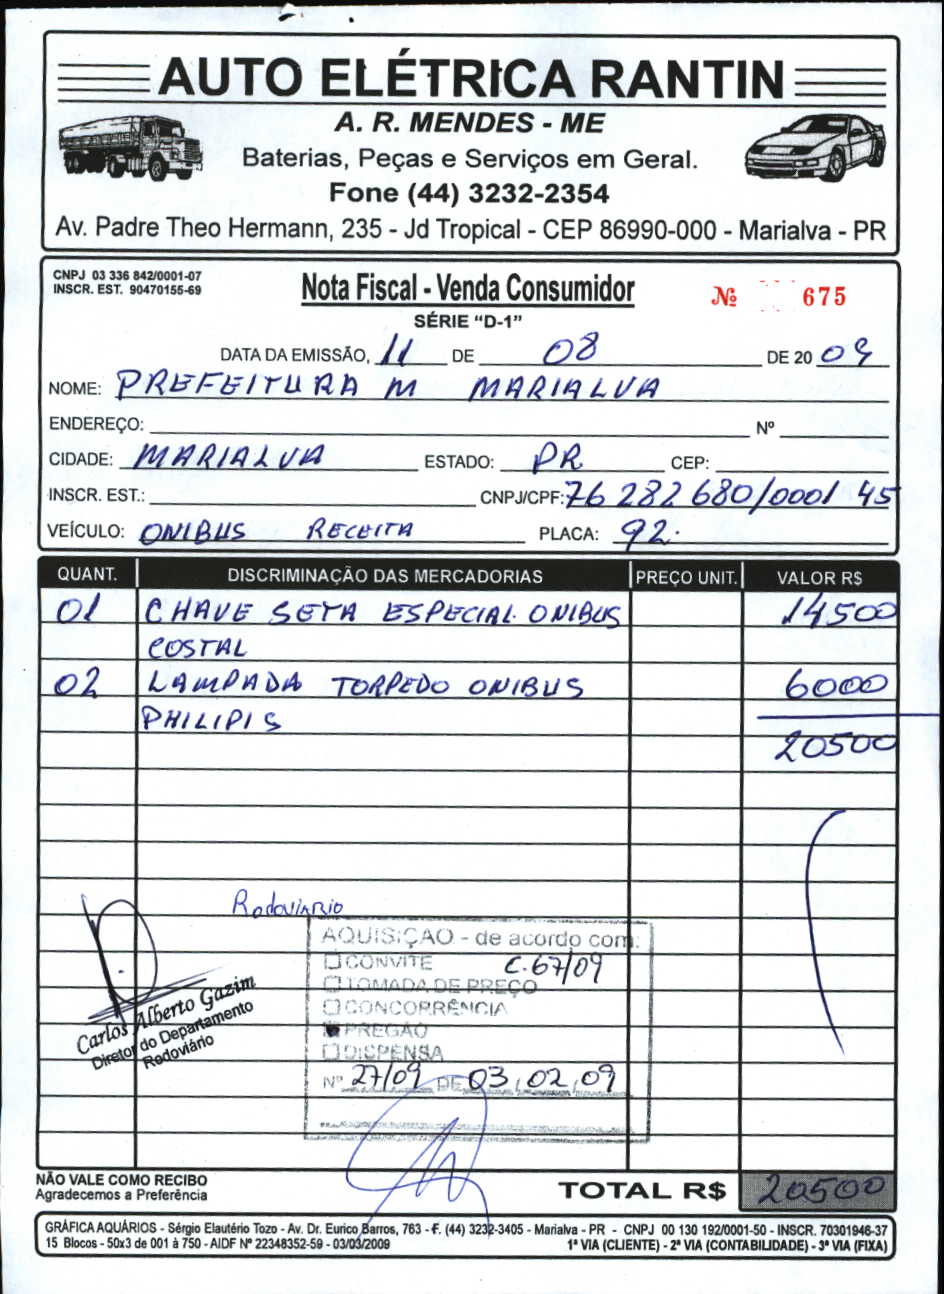 AUTO ELÉTRICA RANTIN
A. R. MENDES - ME
Baterias, Peças e Serviços em Geral.
Fone (44) 3232-2354
Av. Padre Theo Hermann, 235 - Jd Tropical - CEP 86990-000 - Marialva - PR
CNPJ 03 336 842/0001-07
INSCR. EST. 90470155-69
Nota Fiscal - Venda Consumidor
Nº 675
SÉRIE “D-1”
DATA DA EMISSÃO, 11 DE 08 DE 20 09
NOME: PREFEITURA M MARIALVA
ENDEREÇO: Nº
CIDADE: MARIALVA ESTADO: PR CEP:
INSCR. EST.: CNPJ/CPF: 76 282 680/0001 45
VEÍCULO: ONIBUS RECEITA PLACA: 92.
QUANT. DISCRIMINAÇÃO DAS MERCADORIAS PREÇO UNIT. VALOR R$
01 CHAVE SETA ESPECIAL ONIBUS 14500
COSTAL
02 LAMPADA TORPEDO ONIBUS 6000
PHILIPIS
20500
Rodoviario
AQUISIÇÃO - de acordo com:
CONVITE C.67/09
TOMADA DE PREÇO
CONCORRÊNCIA
PREGÃO
DISPENSA
Nº 27/09 DE 03,02,09
Carlos Alberto Gazim
Diretor do Departamento
Rodoviário
NÃO VALE COMO RECIBO
Agradecemos a Preferência
TOTAL R$ 20500
GRÁFICA AQUÁRIOS - Sérgio Elautério Tozo - Av. Dr. Eurico Barros, 763 - F. (44) 3232-3405 - Marialva - PR - CNPJ 00 130 192/0001-50 - INSCR. 70301946-37
15 Blocos - 50x3 de 001 à 750 - AIDF Nº 22348352-59 - 03/03/2009 1ª VIA (CLIENTE) - 2ª VIA (CONTABILIDADE) - 3ª VIA (FIXA)